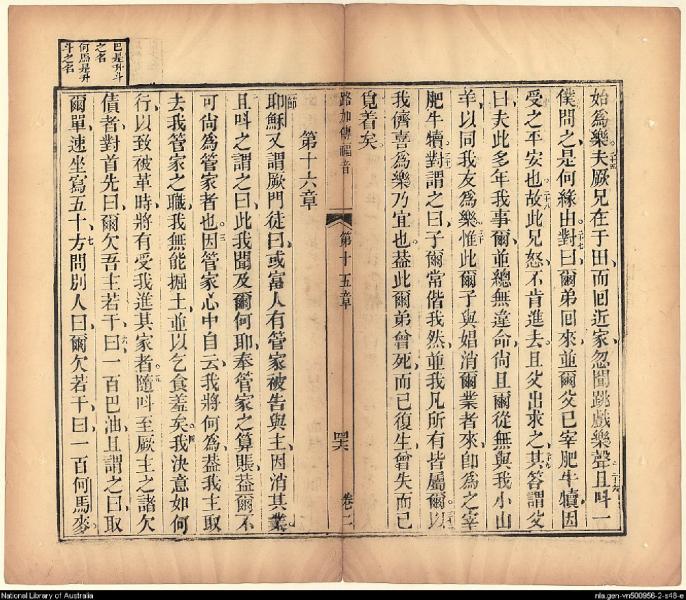 始爲樂夫厥兄在于田而囘近家忽聞跳戲樂聲且呌一
僕問之是何緣由對曰爾弟囘來並爾父已宰肥牛犢因
受之平安也故此兄怒不肯進去且父出求之其答謂父
曰夫此多年我事爾並總無違命尙且爾從無與我小山
羊以同我友爲樂惟此爾子與娼消爾業者來卽爲之宰
肥牛犢對謂之曰子爾常偕我然並我凡所有皆屬爾以
我儕喜爲樂乃宜也葢此爾弟曾死而已復生曾失而已
覓着矣
路加傳福音 第十五章 卷二
第十六章
耶穌又謂厥門徒曰或富人有管家被告與主因消其業
且呌之謂之曰此我聞及爾何耶奉管家之算賬葢爾不
可尙爲管家者也因管家心中自云我將何爲葢我主取
去我管家之職我無能掘土並以乞食羞矣我決意如何
行以致被革時將有受我進其家者隨呌至厥主之諸欠
債者對首先曰爾欠吾主若干曰一百巴油且謂之曰取
爾單速坐寫五十方問別人曰爾欠若干曰一百何馬麥
巴是升斗
之名
何馬是升
斗之名
National Library of Australia
nla.gen-vn500956-2-s48-e